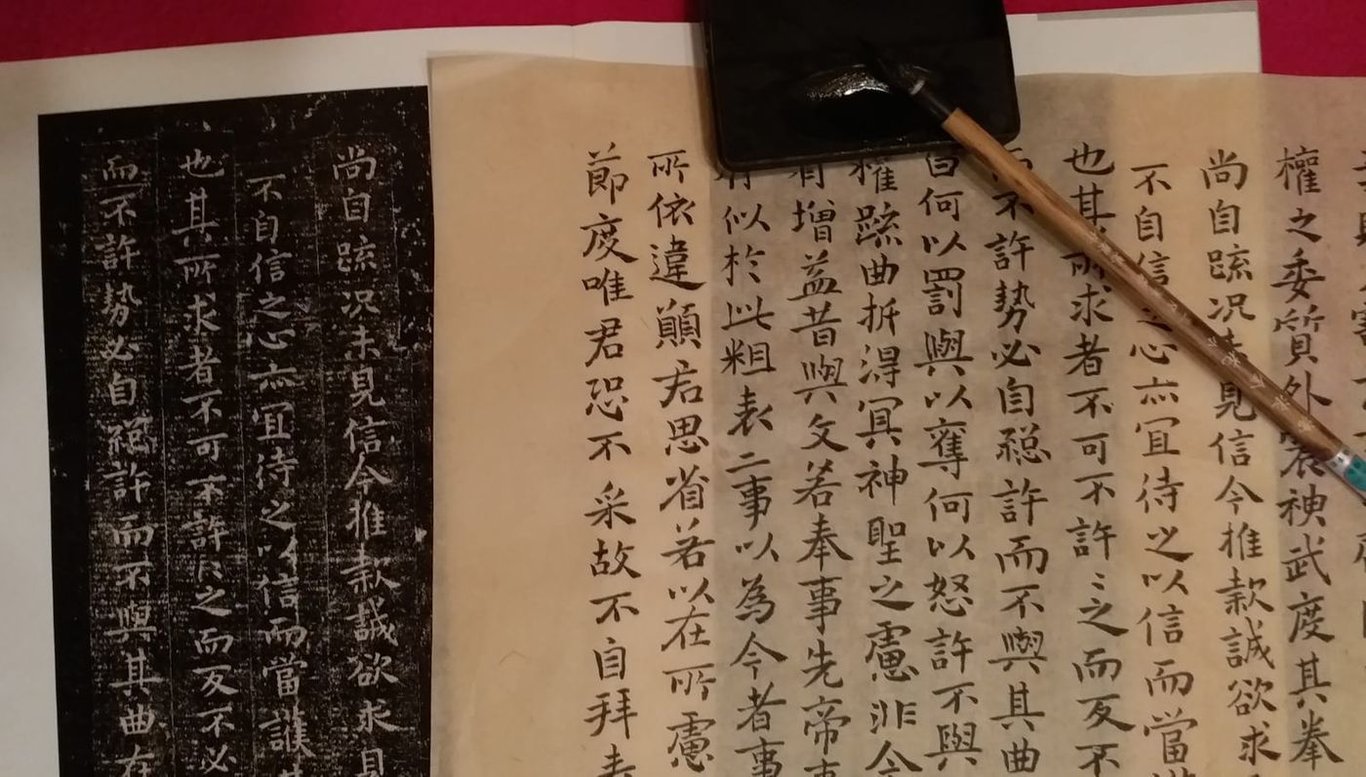 權之委質外震神武度其拳
尚自疏況未見信今推款誠欲求
不自信之心亦宜待之以信而當
也其所求者不可不許〻之而反不
而不許勢必自絕許而不與其曲
曰何以罰與以奪何以怒許不與
權疏曲折得冝神聖之慮非今
有增益昔與文若奉事先帝事
有似於此粗表二事以為今者事
所依違願君思省若以在所慮
節度唯君恐不采故不自拜表
尚自疏況未見信今推款誠欲求見
不自信之心亦宜待之以信而當護其
也其所求者不可不許〻之而反不必
而不許勢必自絕許而不與其曲在